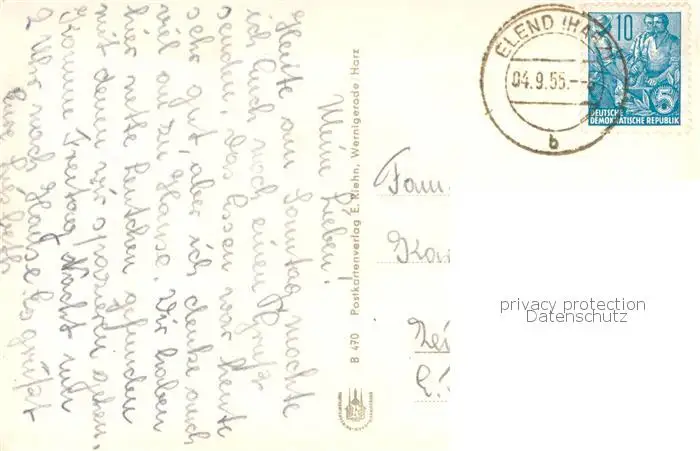 Meine Lieben!
Heute am Sonntag möchte
ich Euch noch einen Gruß
senden. Das Essen war heute
sehr gut, aber ich denke auch
viel an zu Hause. Wir haben
hier nette Leutchen gefunden
mit denen wir spazieren gehen.
Komme Freitag Nacht um
2 Uhr nach Hause. Es grüßt
Eure Liesbeth
B 470 Postkartenverlag E. Riehn, Wernigerode/Harz
ELEND (HARZ)
04.9.55.--
b
10
5
DEUTSCHE
DEMOKRATISCHE REPUBLIK
Fam.
privacy protection
Datenschutz